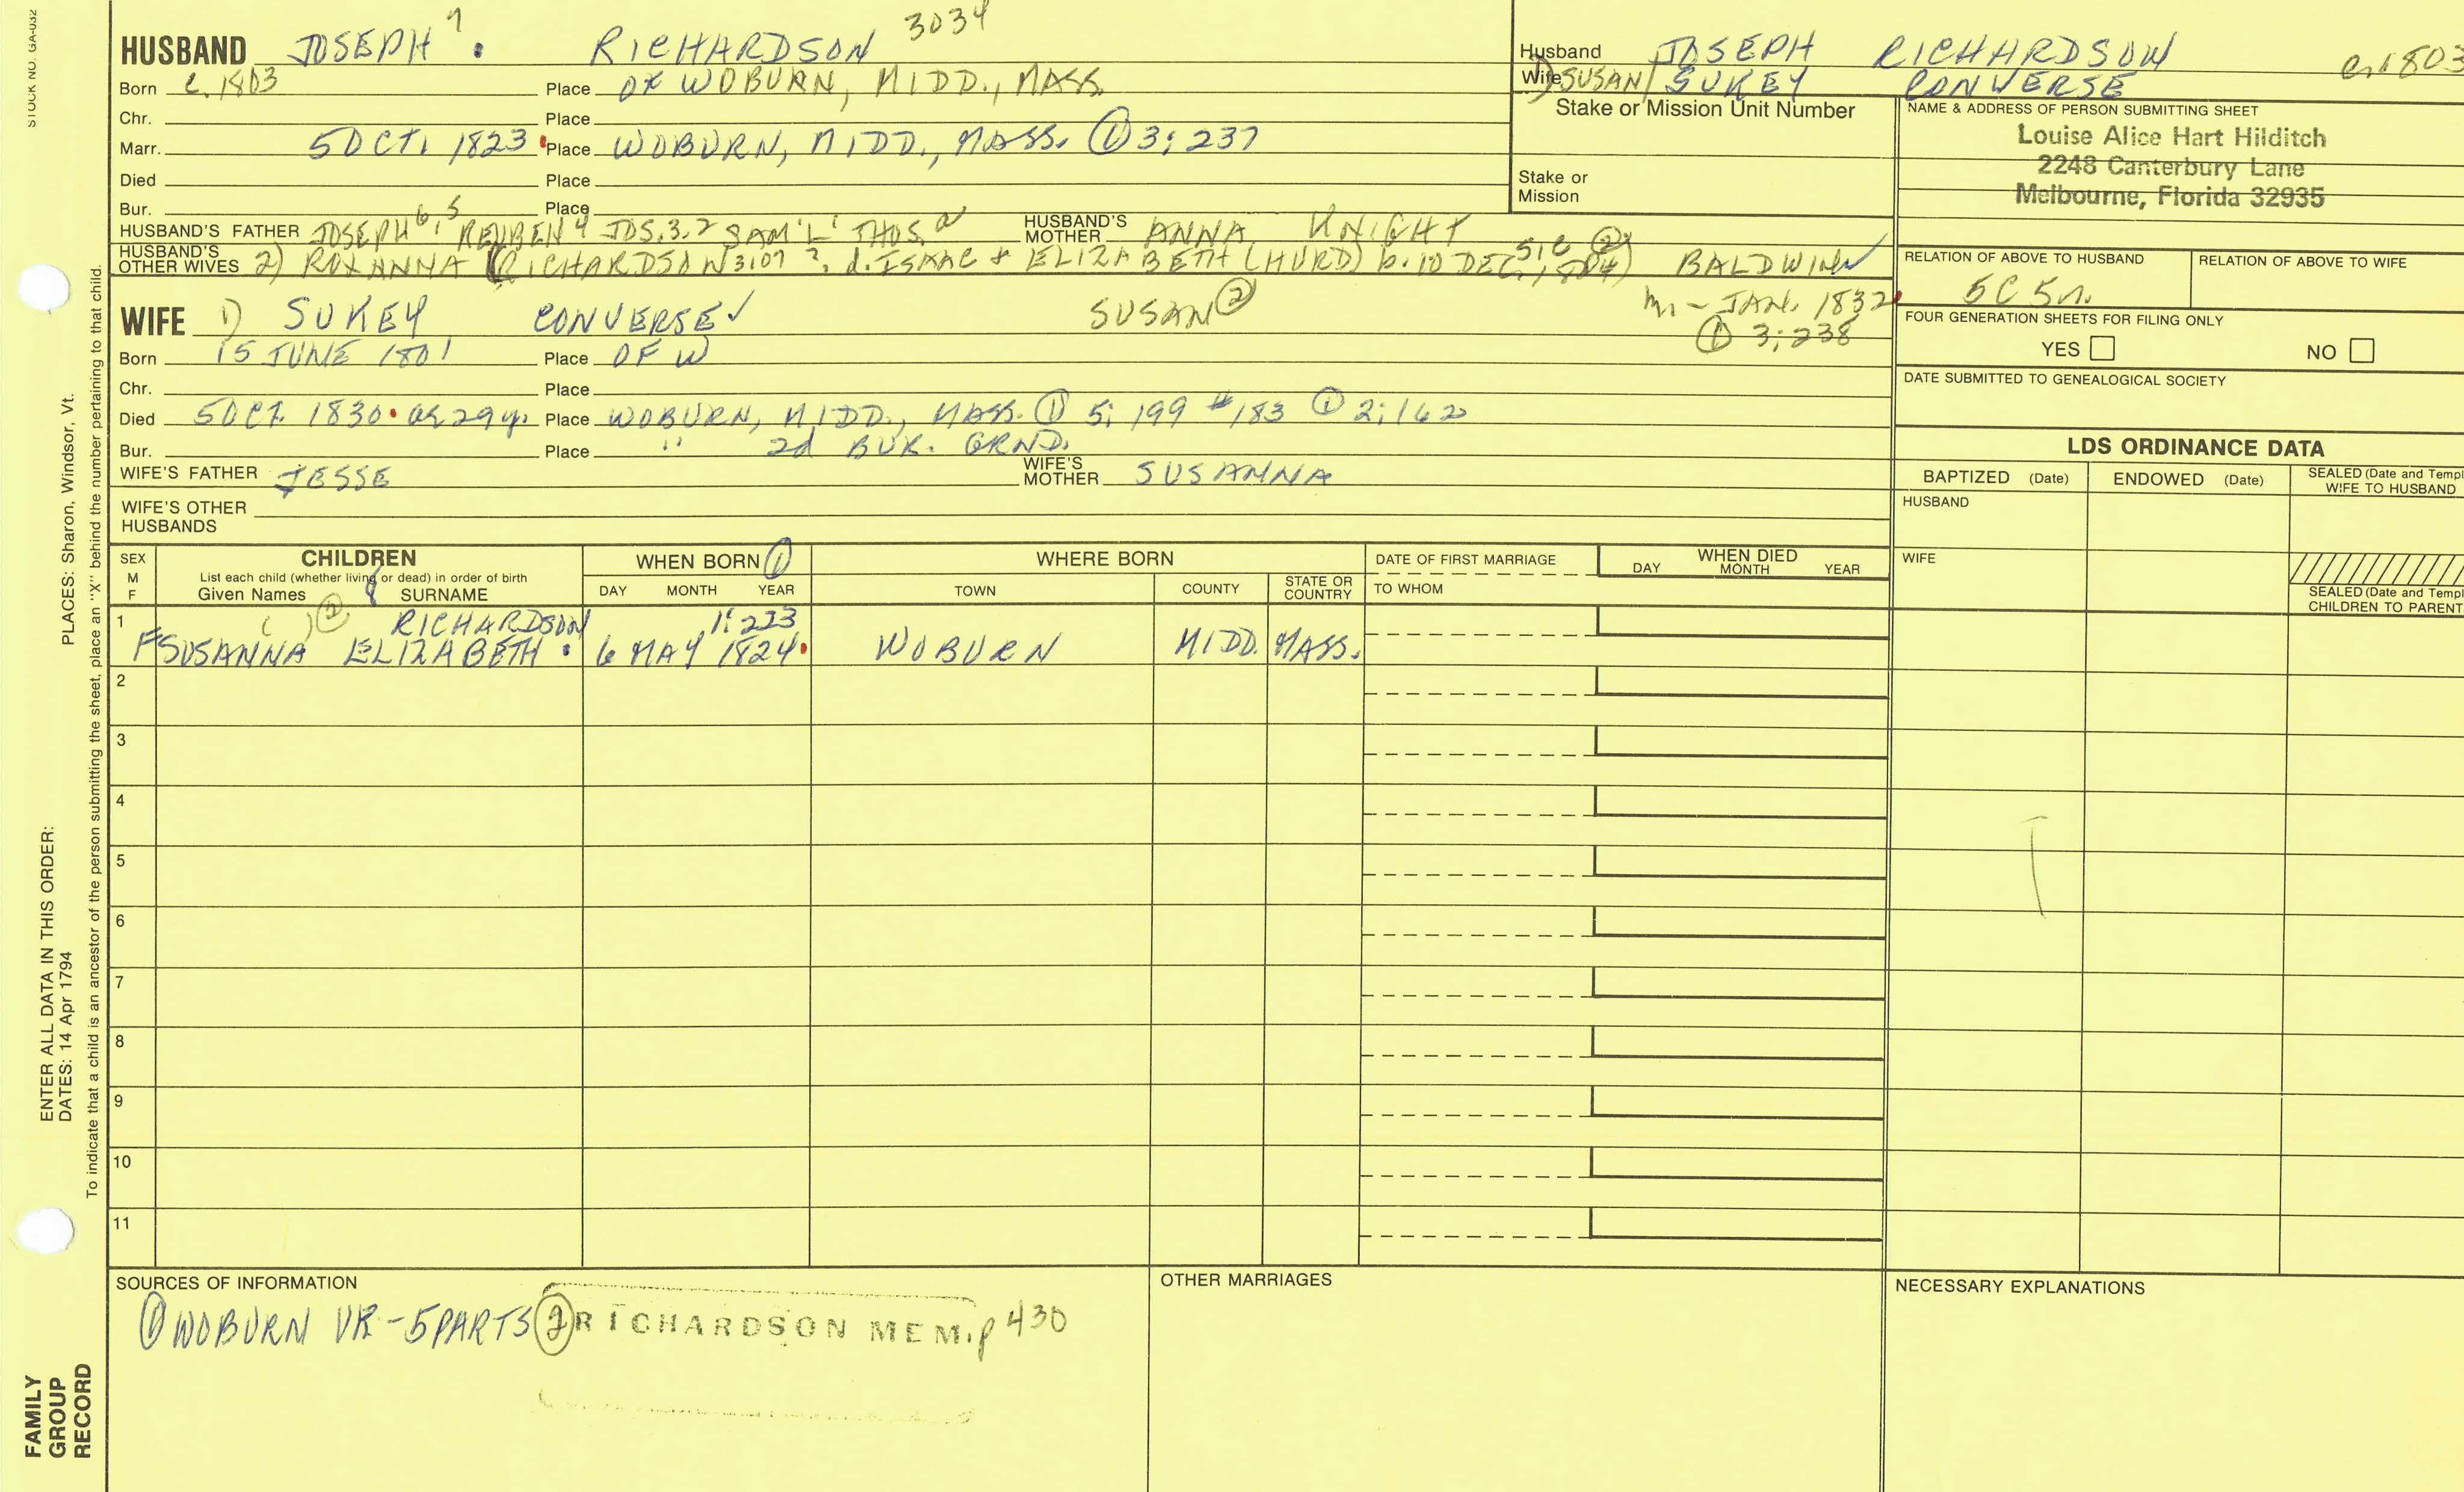 STOCK NO. GA-032
HUSBAND JOSEPH 7 . RICHARDSON 3034
Born c. 1803 Place OF WOBURN, MIDD., MASS.
Chr. Place
Marr. 5 OCT. 1823 Place WOBURN, MIDD., MASS. ① 3; 237
Died Place
Bur. Place
HUSBAND'S FATHER JOSEPH 6, 5 REUBEN 4 JOS. 3, 2 SAM'L 1 THOS. HUSBAND'S MOTHER ANNA KNIGHT
HUSBAND'S OTHER WIVES 2) ROXANNA (RICHARDSON 3107 ?, d. ISAAC & ELIZABETH (HURD) b. 10 DEC. SIC ② BALDWIN ✓
m. - JAN. 1832
① 3; 238
WIFE 1) SUKEY CONVERSE ✓ SUSAN ②
Born 15 JUNE 1801 Place OF W
Chr. Place
Died 5 OCT. 1830 ae 29 y. Place WOBURN, MIDD., MASS. ① 5; 199 #183 ① 2; 162
Bur. Place " 2d BUR. GRND.
WIFE'S FATHER JESSE WIFE'S MOTHER SUSANNA
WIFE'S OTHER HUSBANDS
Husband JOSEPH RICHARDSON c. 1803
Wife 1) SUSAN/ SUKEY CONVERSE
Stake or Mission Unit Number
Stake or Mission
NAME & ADDRESS OF PERSON SUBMITTING SHEET
Louise Alice Hart Hilditch
2248 Canterbury Lane
Melbourne, Florida 32935
RELATION OF ABOVE TO HUSBAND RELATION OF ABOVE TO WIFE
5C 5r.
FOUR GENERATION SHEETS FOR FILING ONLY
YES NO
DATE SUBMITTED TO GENEALOGICAL SOCIETY
LDS ORDINANCE DATA
BAPTIZED (Date) ENDOWED (Date) SEALED (Date and Templ
WIFE TO HUSBAND
HUSBAND
WIFE
SEALED (Date and Templ
CHILDREN TO PARENT
SEX M F
CHILDREN
List each child (whether living or dead) in order of birth
Given Names SURNAME
WHEN BORN ①
DAY MONTH YEAR
WHERE BORN
TOWN COUNTY STATE OR COUNTRY
DATE OF FIRST MARRIAGE
TO WHOM
WHEN DIED
DAY MONTH YEAR
8
1 ( ) ② RICHARDSON 1: 223
F SUSANNA ELIZABETH . 6 MAY 1824 WOBURN MIDD. MASS.
2
3
4
5
6
7
8
9
10
11
SOURCES OF INFORMATION
① WOBURN VR - 5 PARTS ② RICHARDSON MEM. p 430
OTHER MARRIAGES
NECESSARY EXPLANATIONS
PLACES: Sharon, Windsor, Vt.
To indicate that a child is an ancestor of the person submitting the sheet, place an "X" behind the number pertaining to that child.
ENTER ALL DATA IN THIS ORDER:
DATES: 14 Apr 1794
FAMILY
GROUP
RECORD